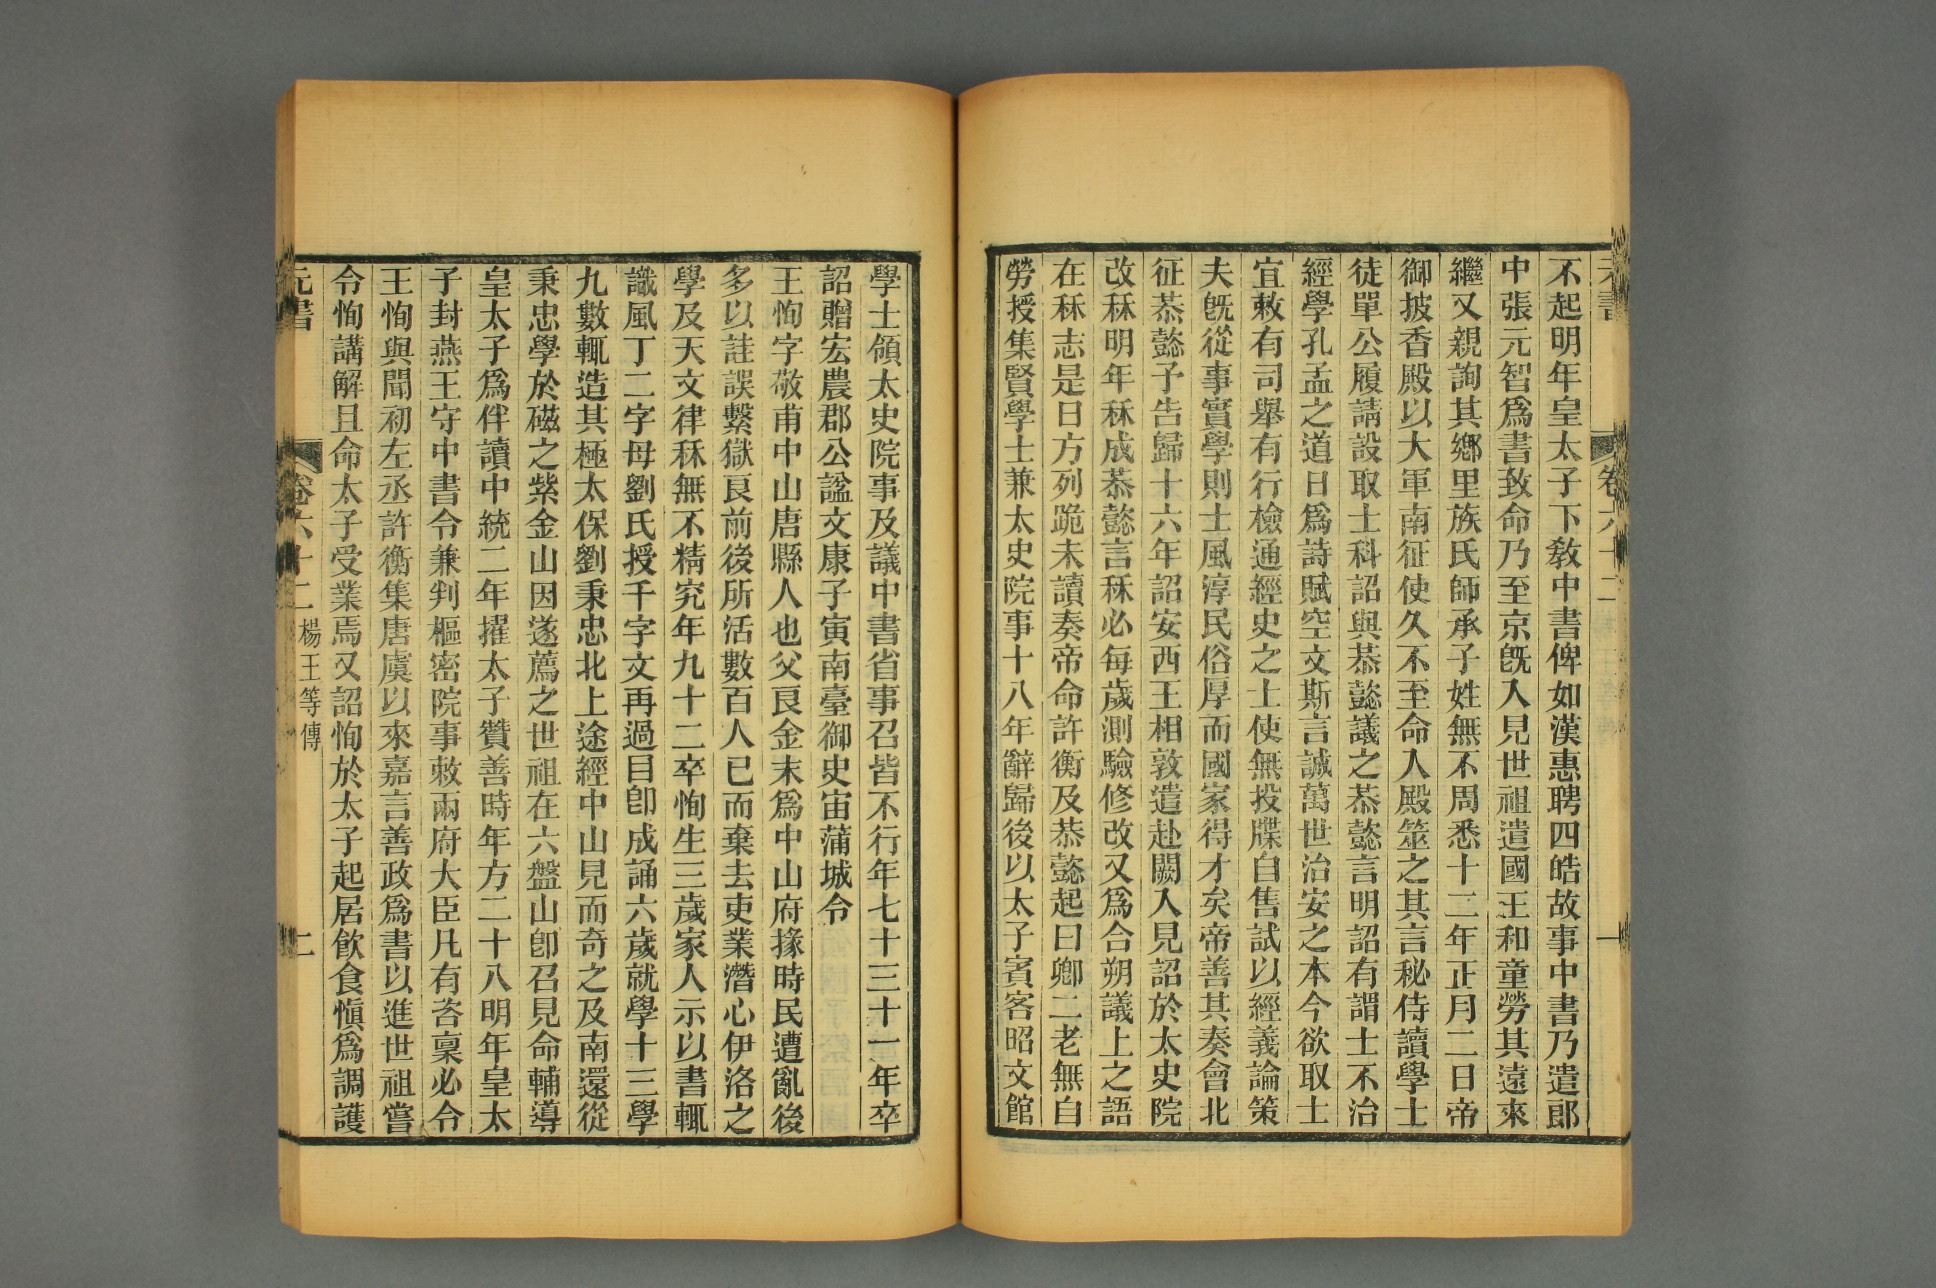 不起明年皇太子下敎中書俾如漢惠聘四皓故事中書乃遣郎
中張元智爲書致命乃至京旣入見世祖遣國王和童勞其遠來
繼又親詢其鄉里族氏師承子姓無不周悉十二年正月二日帝
御披香殿以大軍南征使久不至命入殿筮之其言秘侍讀學士
徒單公履請設取士科詔與恭懿議之恭懿言明詔有謂士不治
經學孔孟之道日爲詩賦空文斯言誠萬世治安之本今欲取士
宜敕有司舉有行檢通經史之士使無投牒自售試以經義論策
夫旣從事實學則士風淳民俗厚而國家得才矣帝善其奏會北
征恭懿予告歸十六年詔安西王相敦遣赴闕入見詔於太史院
改秝明年秝成恭懿言秝必每歲測驗修改又爲合朔議上之語
在秝志是日方列跪未讀奏帝命許衡及恭懿起曰卿二老無自
勞授集賢學士兼太史院事十八年辭歸後以太子賓客昭文館
學士領太史院事及議中書省事召皆不行年七十三十一年卒
詔贈宏農郡公謚文康子寅南臺御史宙蒲城令
王恂字敬甫中山唐縣人也父良金末爲中山府掾時民遭亂後
多以詿誤繫獄良前後所活數百人已而棄去吏業潛心伊洛之
學及天文律秝無不精究年九十二卒恂生三歲家人示以書輒
識風丁二字母劉氏授千字文再過目卽成誦六歲就學十三學
九數輒造其極太保劉秉忠北上途經中山見而奇之及南還從
秉忠學於磁之紫金山因遂薦之世祖在六盤山卽召見命輔導
皇太子爲伴讀中統二年擢太子贊善時年方二十八明年皇太
子封燕王守中書令兼判樞密院事敕兩府大臣凡有咨稟必令
王恂與聞初左丞許衡集唐虞以來嘉言善政爲書以進世祖嘗
令恂講解且命太子受業焉又詔恂於太子起居飲食愼爲調護
元書
卷六十二 楊王等傳
二